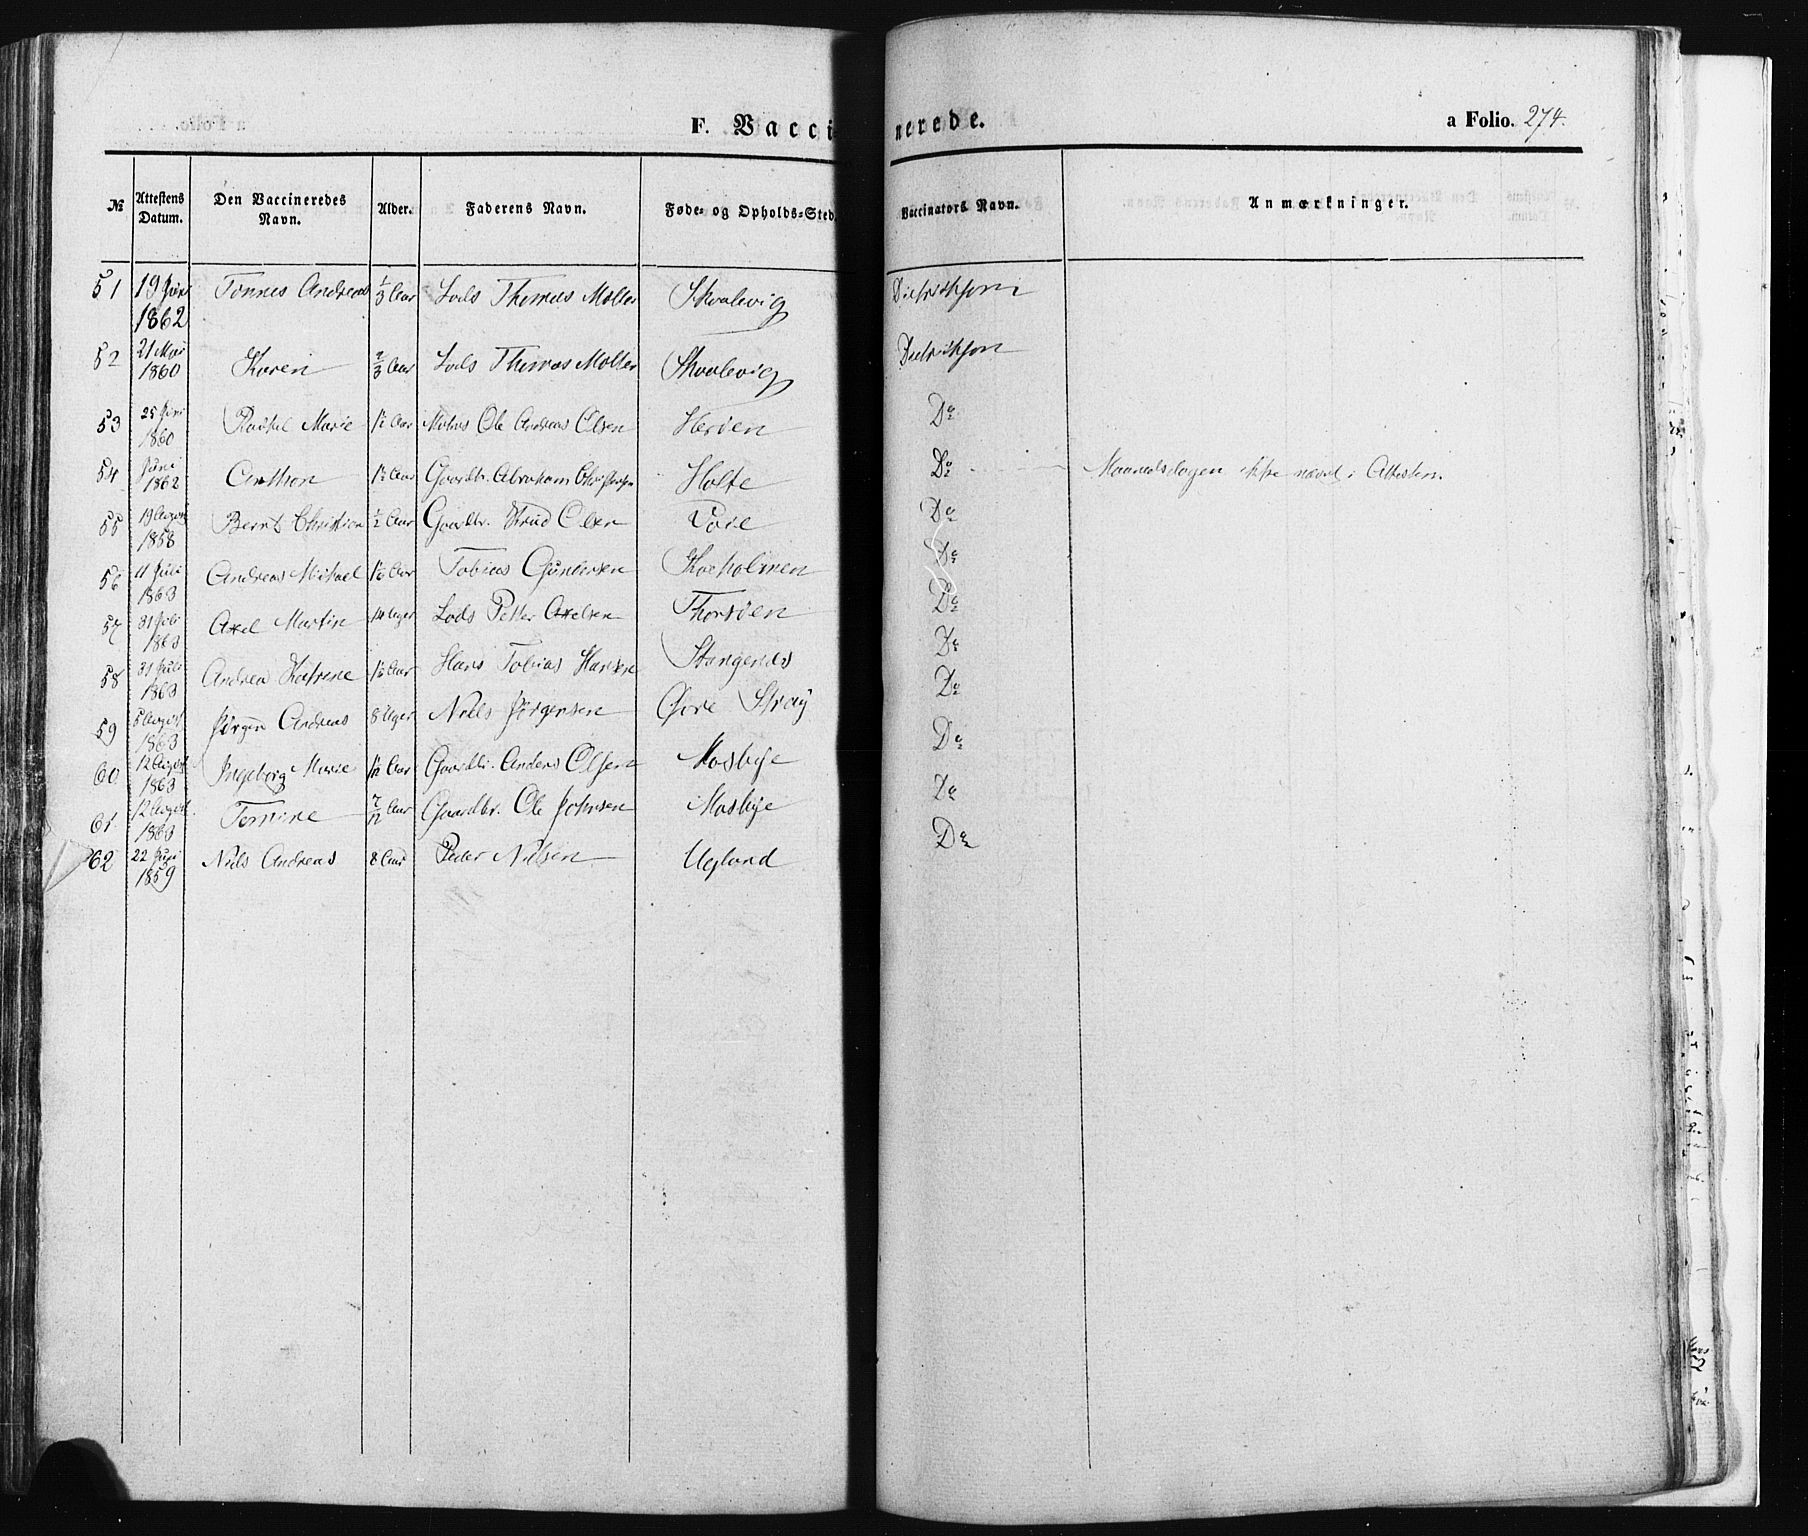 F. Vaccinerede.
a Folio. 274.
№ Attestens Datum. Den Vaccineredes Navn. Alder. Faderens Navn. Føde- og Opholds-Sted. Vaccinators Navn. Anmærkninger.
51 19 Juni 1862 Tønnes Andreas 1/3 Aar Lods Thomas Molter Skaalevig Dietrichson
52 21 Mai 1860 Karen 2/3 Aar Lods Thomas Molter Skaalevig Dietrichson
53 25 Juni 1860 Rachel Marie Aar Ole Andreas Olsen Herøen Do
54 Juni 1862 Anthon Aar Gaardbr. Abraham Christensen Holte Do Maanedsdagen ikke nævnt i Attesten.
55 19 August 1858 Bernt Christian 1/2 Aar Gaardbr. Olsen Do
56 11 Juli 1863 Andreas Mikael Aar Tobias Gundersen Do
57 31 Juli 1863 Axel Martin 14 Uger Lods Petter Axelsen Thorsøen Do
58 31 Juli 1863 Andrea Katrine Aar Hans Tobias Hansen Stangenæs Do
59 5 August 1863 Jørgen Andreas 8 Uger Niels Jørgensen Øvre Stray Do
60 12 August 1863 Ingeborg Marie Aar Gaardbr. Anders Olsen Mosbye Do
61. 12 August 1863 Tomine 7/12 Aar Gaardbr. Ole Johnsen Mosbye Do
62 22 Juni 1859 Niels Andreas 8 Aar Peder Nilsen Ugland Do